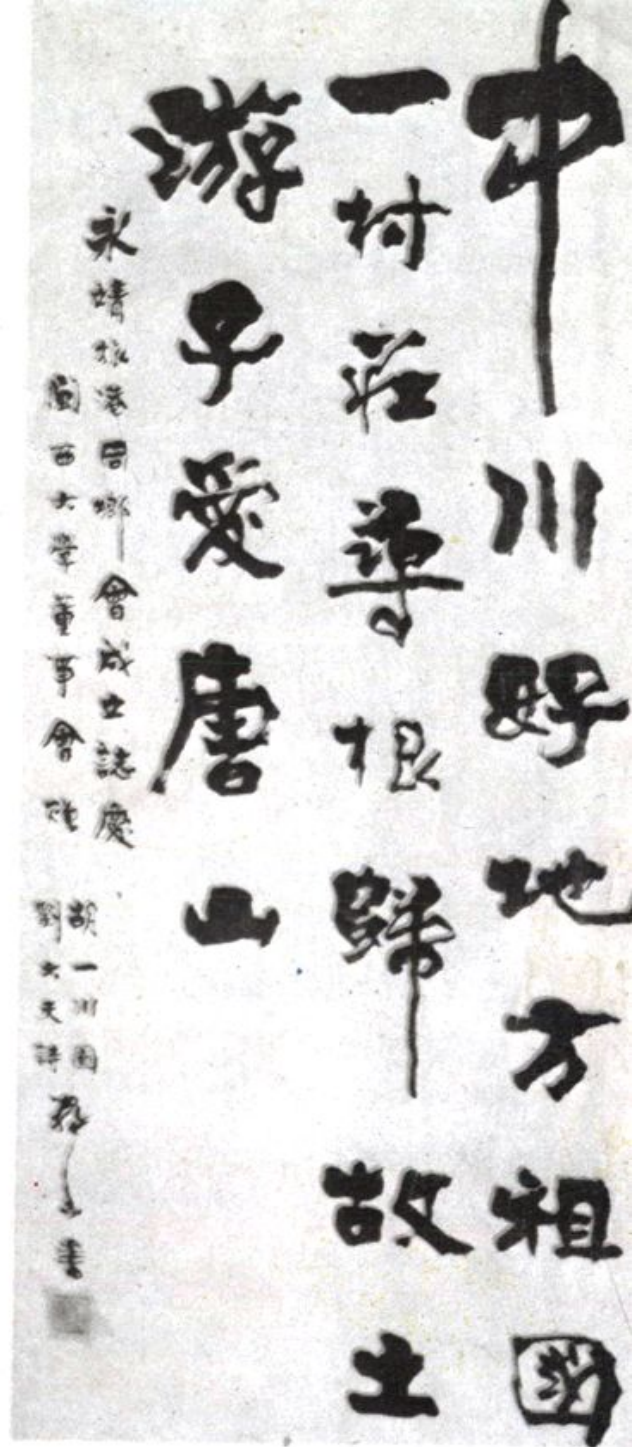 中川好地方祖國
一村莊尋根歸故土
游子愛唐山
永靖旅港同鄉會成立誌慶
閩西大學董事會
胡一川園
劉大天詩
書